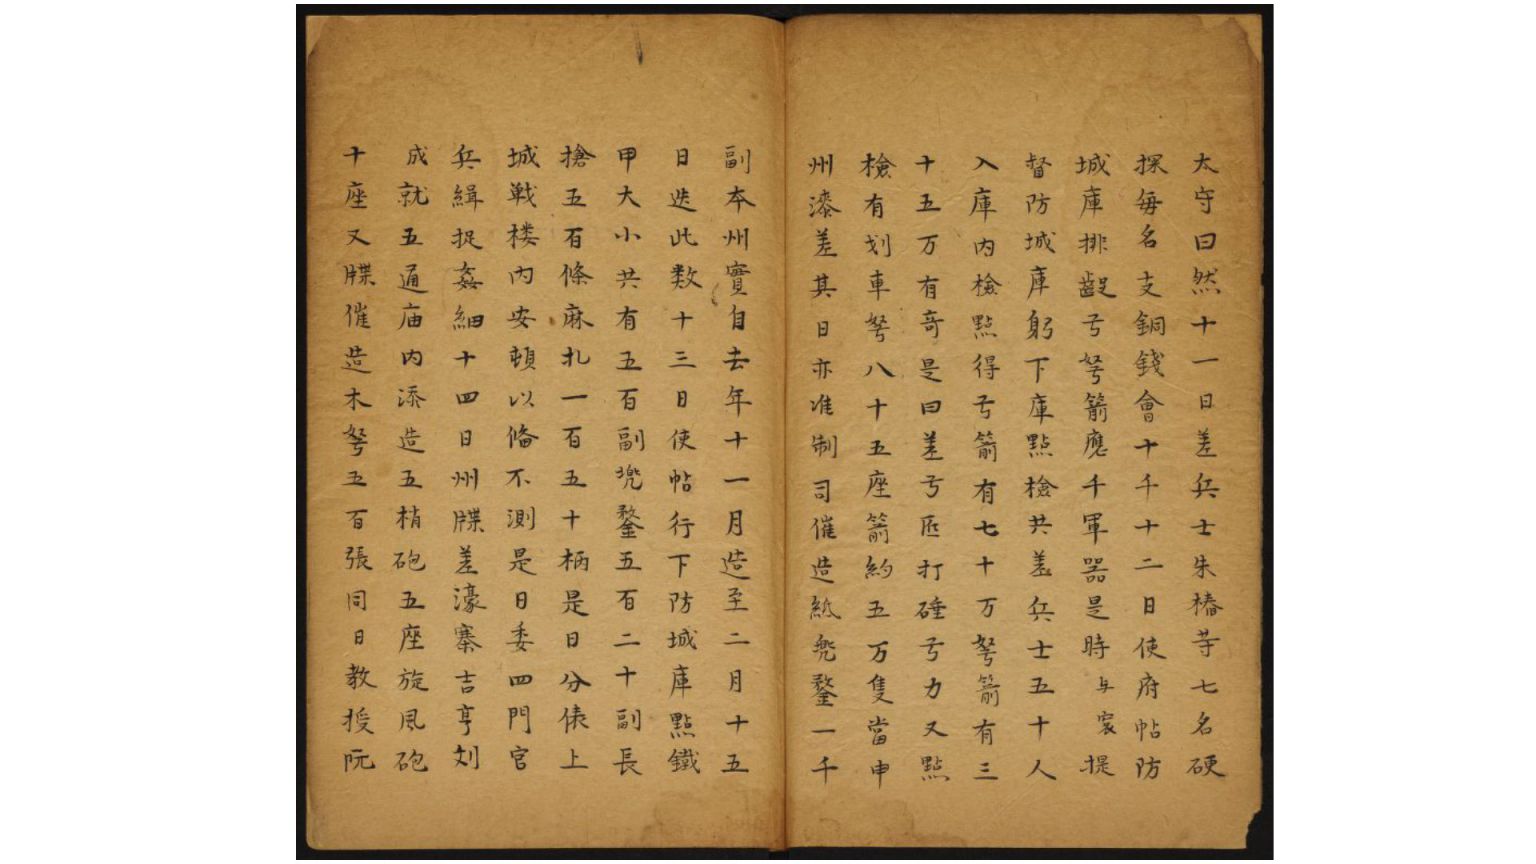 太守曰然十一日差兵士朱椿等七名硬
探每名支銅錢會十千十二日使府帖防
城庫排齪弓弩箭應千軍器是時与寔提
督防城庫躬下庫點檢共差兵士五十人
入庫內檢點得弓箭有七十万弩箭有三
十五万有奇是曰差弓匠打硾弓力又點
檢有划車弩八十五座箭約五万隻當申
州漆差其日亦准制司催造紙兠鍪一千
副夲州實自去年十一月造至二月十五
日迭此数十三日使帖行下防城庫點鐵
甲大小共有五百副兠鍪五百二十副長
搶五百條麻扎一百五十柄是日分俵上
城戦楼内安頓以俻不測是日委四門官
兵緝捉姦細十四日州牒差濠寨吉亨刘
成就五通庙内添造五梢砲五座旋風砲
十座又牒催造木弩五百張同日教授阮